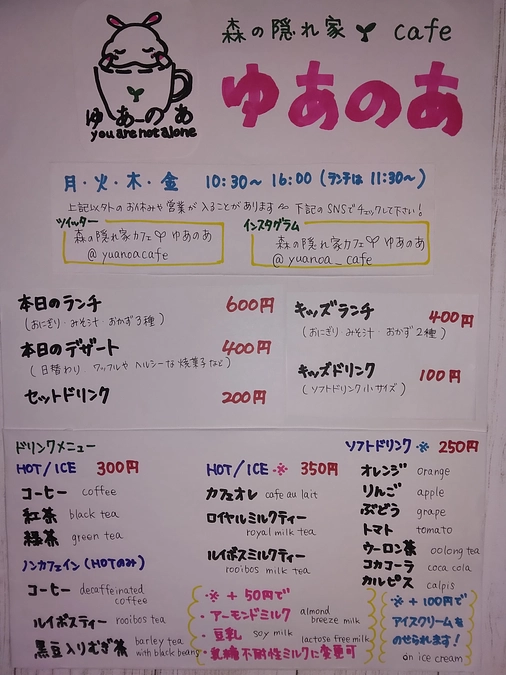 森の隠れ家 cafe
ゆあのあ
ゆあーのあ
you are not alone
月・火・木・金 10:30〜16:00 (ランチは11:30〜)
上記以外のお休みや営業が入ることがあります 下記のSNSでチェックして下さい!
ツイッター
森の隠れ家カフェ ゆあのあ
@yuanoacafe
インスタグラム
森の隠れ家カフェ ゆあのあ
@yuanoa_cafe
本日のランチ 600円
(おにぎり・みそ汁・おかず3種)
本日のデザート 400円
(日替わり ワッフルやヘルシーな焼菓子など)
セットドリンク 200円
キッズランチ 400円
(おにぎり みそ汁・おかず2種)
キッズドリンク 100円
(ソフトドリンク小サイズ)
ドリンクメニュー
HOT/ICE 300円
コーヒー coffee
紅茶 black tea
緑茶 green tea
ノンカフェイン(HOTのみ)
コーヒー decaffeinated
coffee
ルイボスティー rooibos tea
黒豆入りむぎ茶 barley tea
with black beans
HOT/ICE ※ 350円
カフェオレ cafe au lait
ロイヤルミルクティー
royal milk tea
ルイボスミルクティー
rooibos milk tea
※ +50円で
・アーモンドミルク almond
breeze milk
・豆乳 soy milk
lactose free milk
・乳糖不耐性ミルクに変更可
ソフトドリンク ※ 250円
オレンジ orange
りんご apple
ぶどう grape
トマト tomato
ウーロン茶 oolong tea
コカコーラ coca cola
カルピス calpis
※ +100円で
アイスクリームを
のせられます!
on ice cream